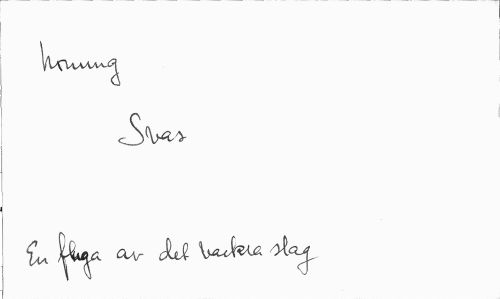 honung
Svas
En fluga av det vackra slag